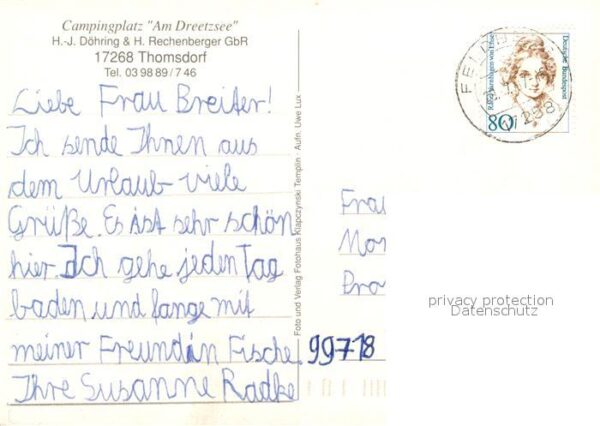 Campingplatz "Am Dreetzsee"
H.-J. Döhring & H. Rechenberger GbR
17268 Thomsdorf
Tel. 03 98 89 / 7 46
Liebe Frau Breiter!
Ich sende Ihnen aus
dem Urlaub viele
Grüße. Es ist sehr schön
hier. Ich gehe jeden Tag
baden und fange mit
meiner Freundin Fische.
Ihre Susanne Radke
Foto und Verlag Fotohaus Klapczynski Templin · Aufn. Uwe Lux
Deutsche Bundespost
80
Frau
99718
privacy protection
Datenschutz